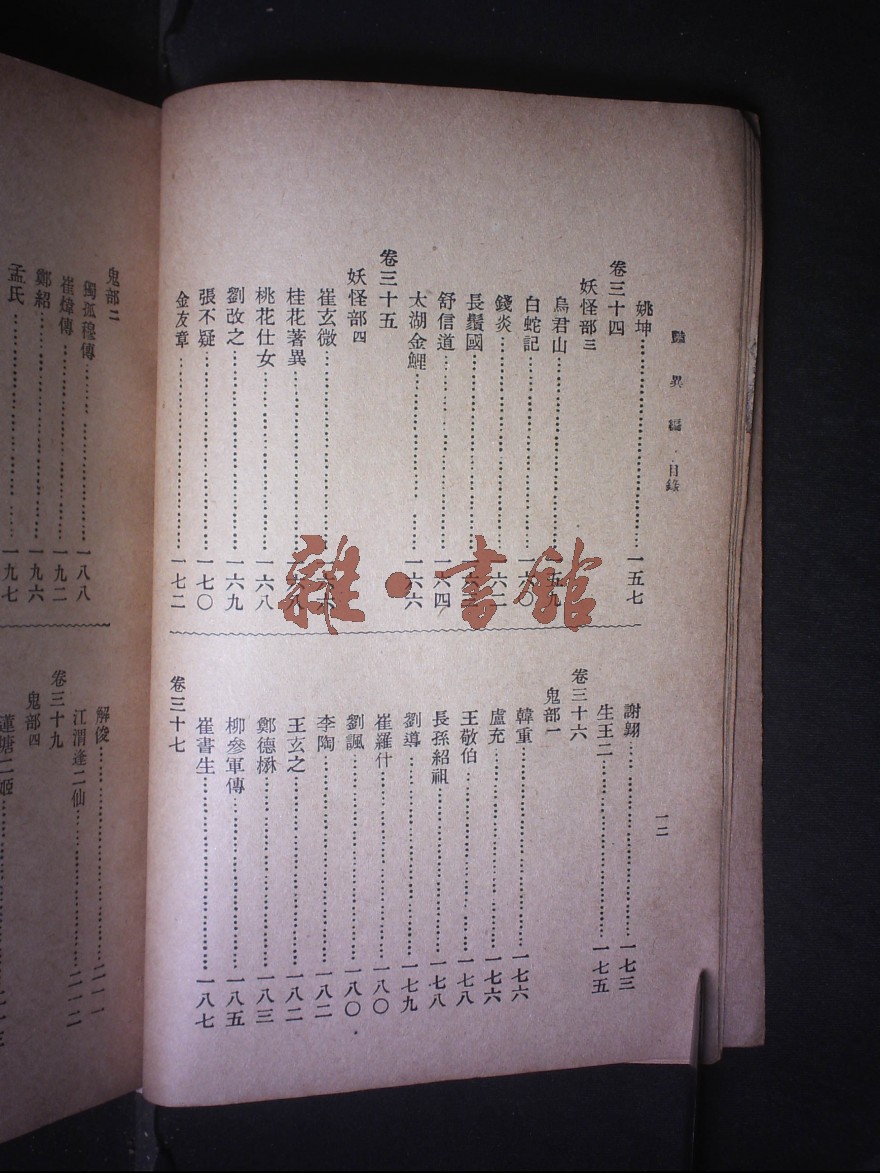 豔異編 目錄
一二
姚坤……一五七
卷三十四
妖怪部三
烏君山……一五九
白蛇記……一六〇
錢炎……一六二
長鬚國
舒信道……一六四
太湖金鯉……一六六
卷三十五
妖怪部四
崔玄微……一六六
桂花著異……一六八
桃花仕女……一六八
劉改之……一六九
張不疑……一七〇
金友章……一七二
謝翱……一七三
生王二……一七五
卷三十六
鬼部一
韓重……一七六
盧充……一七六
王敬伯……一七八
長孫紹祖……一七八
劉導……一七九
崔羅什……一八〇
劉諷……一八〇
李陶……一八二
王玄之……一八二
鄭德楙……一八三
柳參軍傳……一八五
崔書生……一八七
卷三十七
鬼部二
獨孤穆傳……一八八
崔煒傳……一九二
鄭紹……一九六
孟氏……一九七
解俊……二一一
江渭逢二仙……二一二
卷三十九
鬼部四
蓮塘二姬
雜·書館